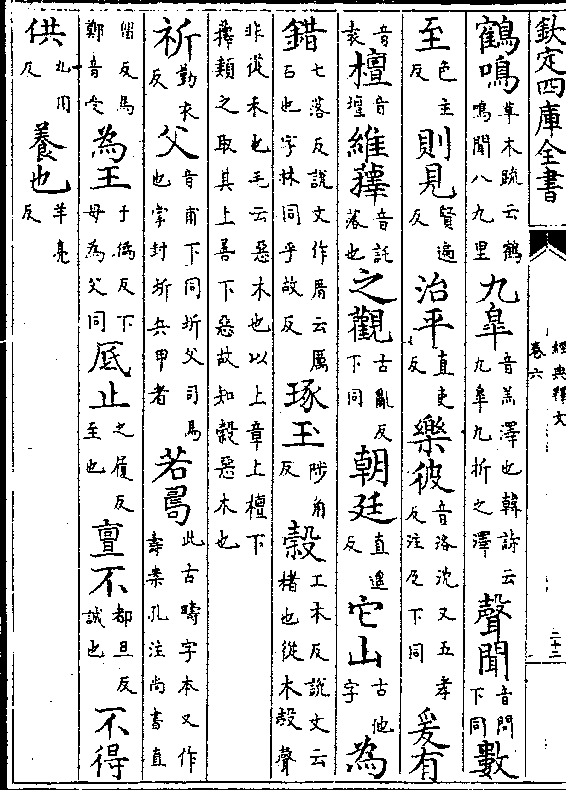 欽定四庫全書
經典釋文
卷六
二十三
鶴鳴 草木疏云鶴鳴聞八九里 九皐 音羔澤也韓詩云九皐九折之澤 聲聞 音問下同 數
至 色主反 則見 賢遍反 治平 直吏反 樂彼 音洛沈又五孝反注及下同 爰有
音袁 檀 音壇 維蘀 音託落也 之觀 古亂反下同 朝廷 直遙反 它山 古他字 為
錯 七落反說文作厝云厲石也字林同乎故反 琢玉 陟角反 榖 工木反說文云楮也從木㱿聲
非從禾也毛云惡木也以上章上檀下蘀類之取其上善下惡故知榖惡木也
祈 勤衣反 父 音甫下同圻父司馬也掌封圻兵甲者 若𠷎 此古疇字本又作壽案孔注尚書直
留反馬鄭音受 為王 于偽反下母為父同 厎止 之履反至也 亶不 都旦反誠也 不得
供 九用反 養也 羊亮反